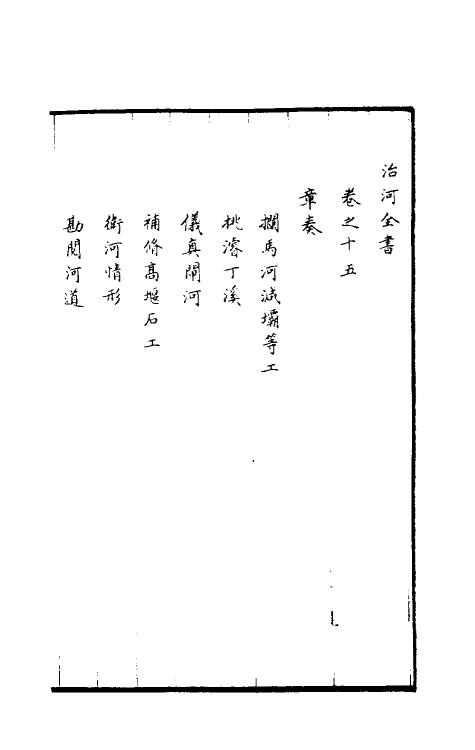 治河全書
卷之十五
章奏
攔馬河減壩等工
挑濬丁溪
儀真閘河
補修高堰石工
衛河情形
勘閱河道